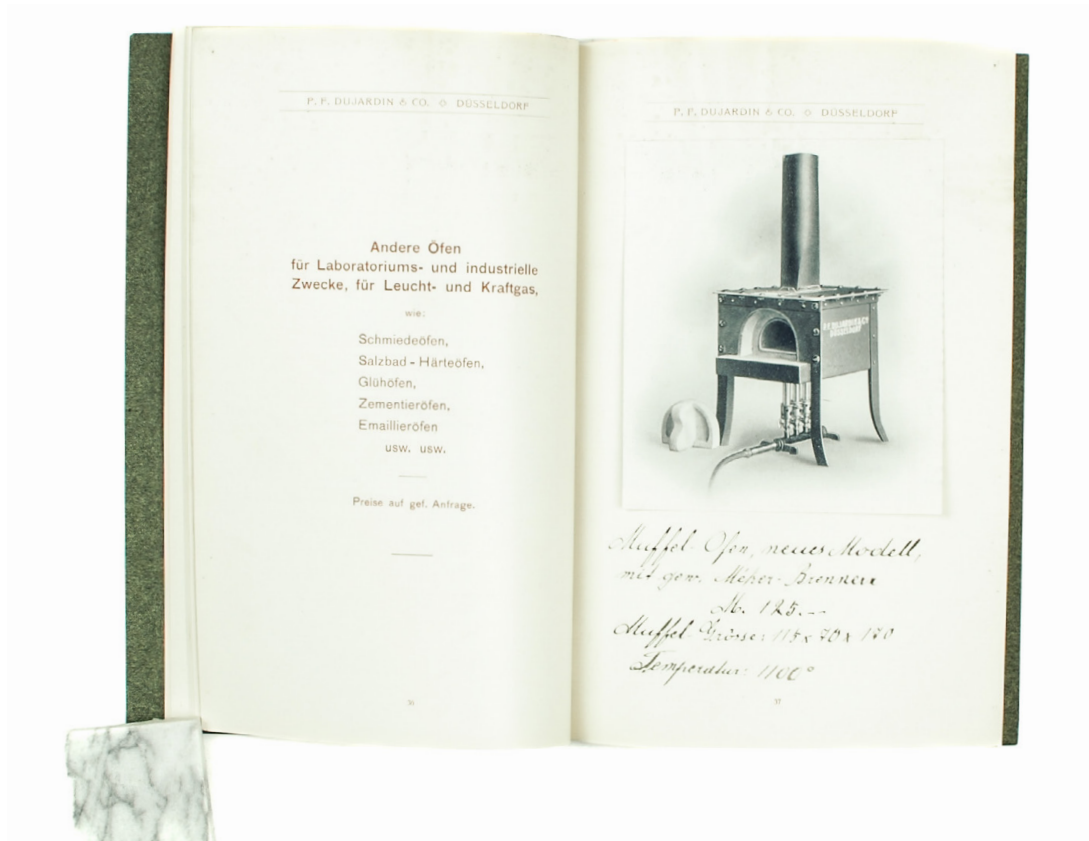 P. F. DUJARDIN & CO. ◇ DÜSSELDORF
Andere Öfen
für Laboratoriums- und industrielle
Zwecke, für Leucht- und Kraftgas,
wie:
Schmiedeöfen,
Salzbad-Härteöfen,
Glühöfen,
Zementieröfen,
Emaillieröfen
usw. usw.
Preise auf gef. Anfrage.
P. F. DUJARDIN & CO. ◇ DÜSSELDORF
P. F. DUJARDIN & Co
DÜSSELDORF
Muffel-Ofen, neues Modell,
mit gew. Méker-Brennern
M. 125.--
Muffel-Grösse: 115 x 70 x 170
Temperatur 1100°